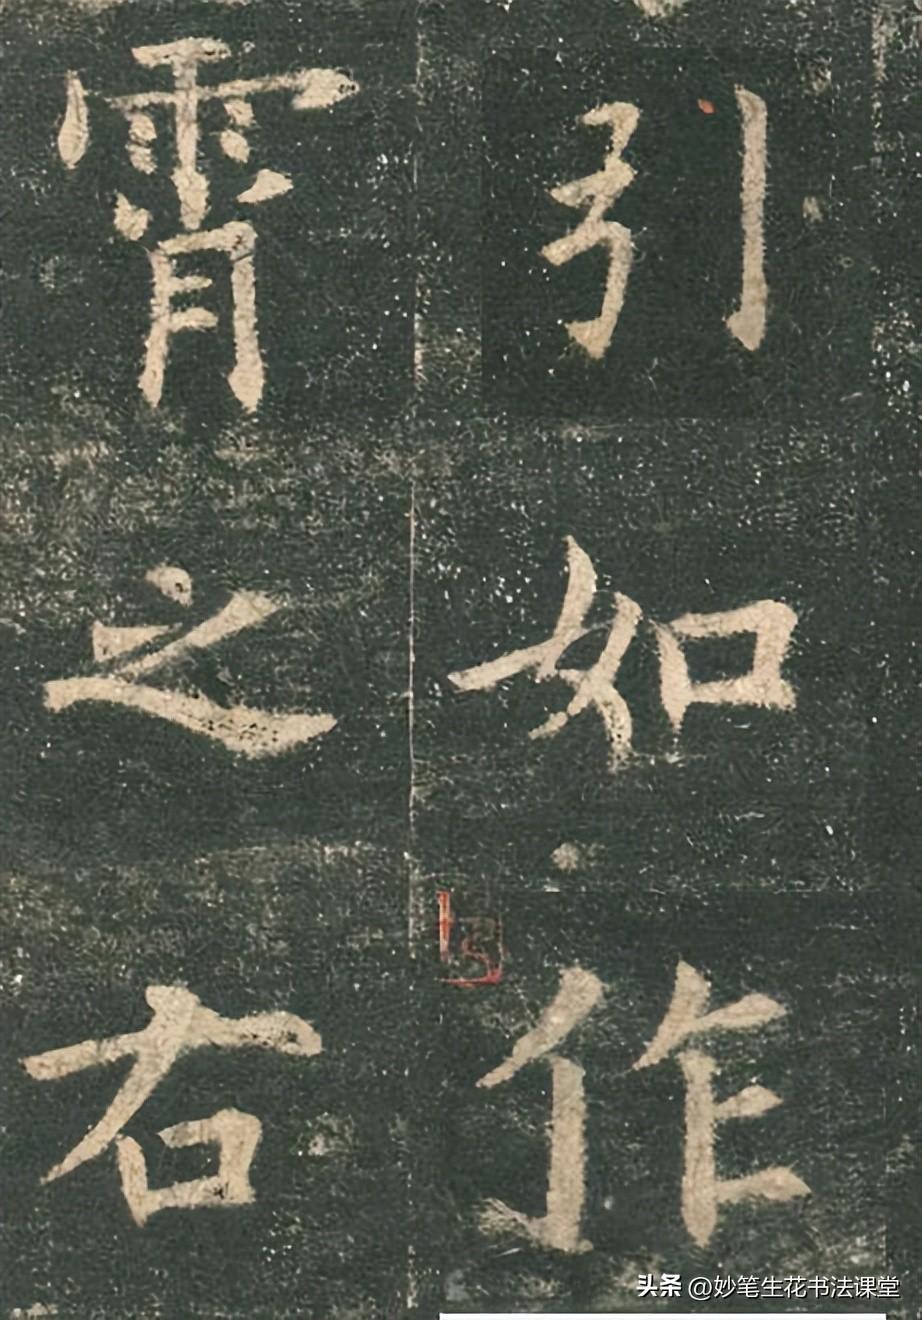 引如作
霄之右
头条 @妙笔生花书法课堂